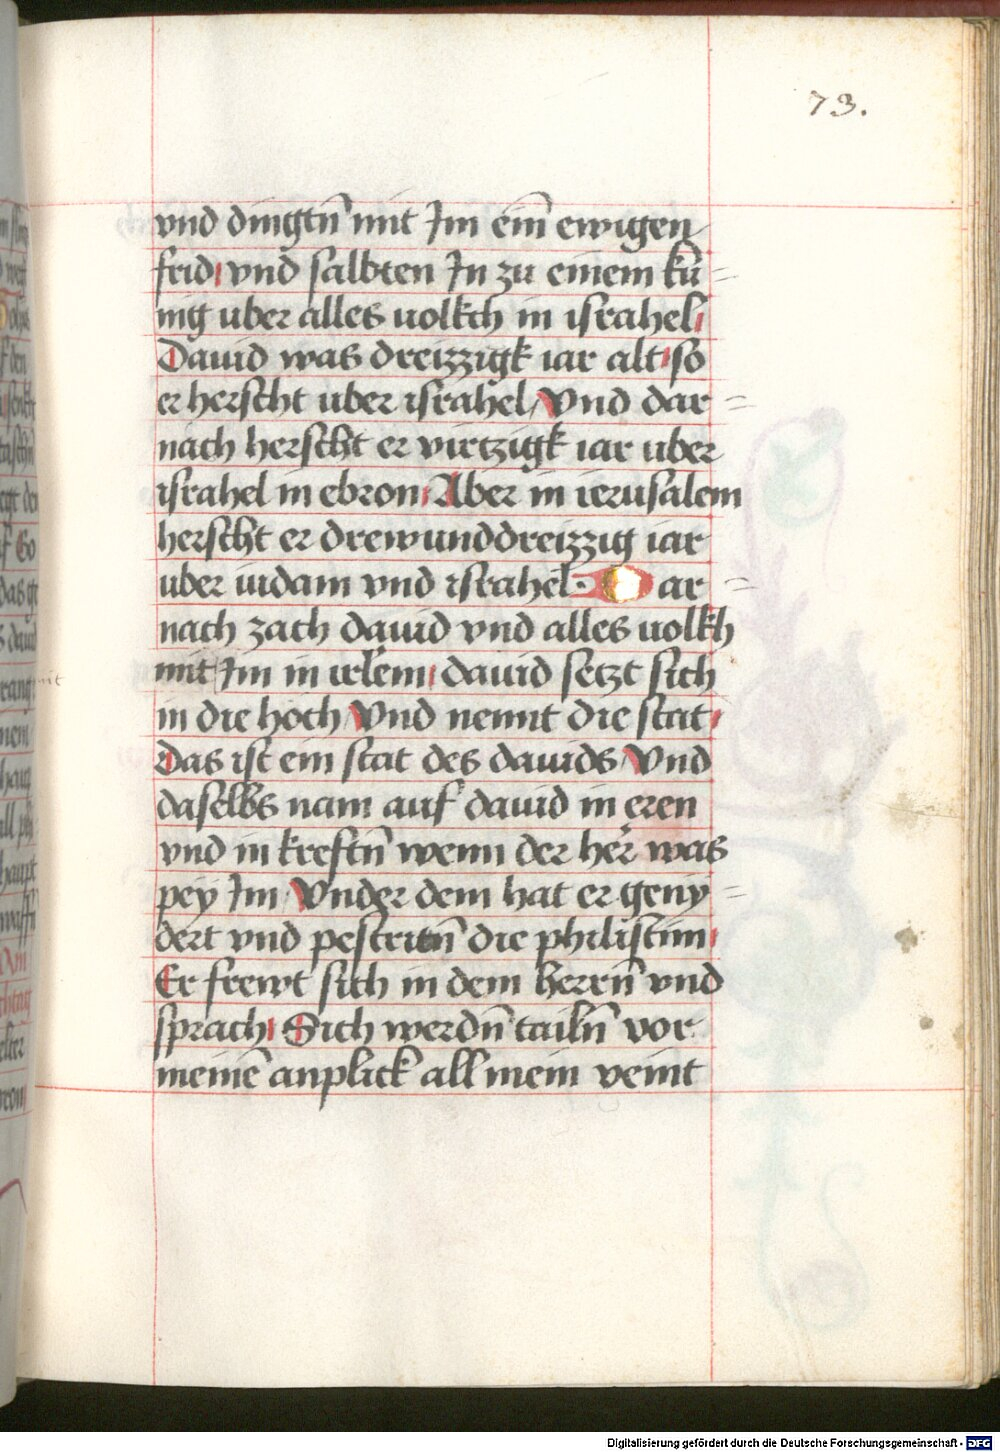 73.
vnd dingtn̄ mit Jm ein̄ ewigen
frid vnd salbten Jn zu einem kü=
nig uber alles uolkch in israhel
Dauid was dreizzigk iar alt so
er herscht uber israhel Vnd dar=
nach herscht er virtzigk iar uber
israhel in ebron Aber in ierusalem
herscht er drewunddreizzig iar
uber iudam vnd israhel· Dar=
nach zach dauid vnd alles uolkh
mit Jm in irl̄em dauid setzt sich
in die hoch Vnd nennt die stat
Das ist ein stat des dauids Vnd
daselbs nam auf dauid in eren
vnd in kreftn̄ wenn der her̄ was
pey Jm Vnder dem hat er geny=
dert vnd pestritn̄ die philistim
Er frewt sich in dem herrn̄ vnd
sprach Sich werdn̄ tailn̄ vor
meinē anplick all mein veint
Digitalisierung gefördert durch die Deutsche Forschungsgemeinschaft - DFG